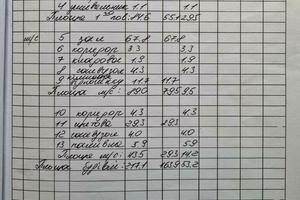 4 умивальник 1.1 1.1
Площа 1 пов: 84.6 55.1 29.5
м/с 5 зал 67.8 67.8
6 коридор 3.3 3.3
7 кладова 1.9 1.9
8 санвузол 4.3 4.3
9 11.7 11.7
Площа м/с: 89.0 79.5 9.5
10 коридор 4.3 4.3
11 29.3 29.3
12 санвузол 4.0 4.0
13 5.9 5.9
Площа м/с: 43.5 29.3 14.2
Площа будівлі: 217.1 163.9 53.2